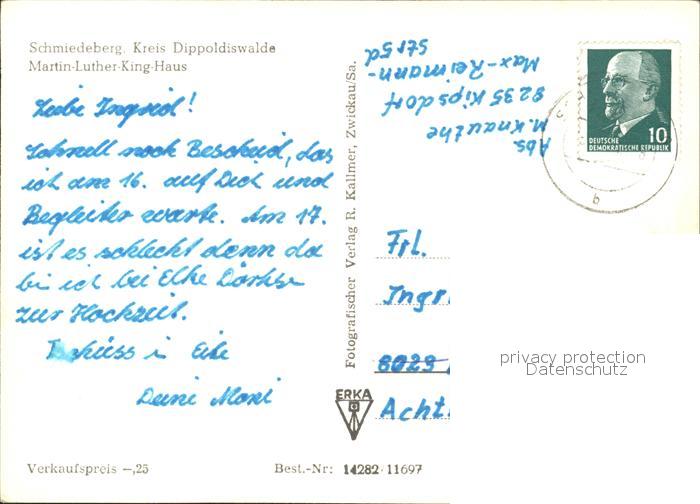 Schmiedeberg, Kreis Dippoldiswalde
Martin-Luther-King-Haus
Liebe Ingrid!
Schnell noch Bescheid, das
ich am 16. auf Dich und
Begleiter warte. Am 17.
ist es schlecht denn da
bin ich bei Elke
zur Hochzeit.
Tschüss in Eile
Deine Moni
Verkaufspreis -,25
Best.-Nr: 14282 11697
Fotografischer Verlag R. Kallmer, Zwickau/Sa.
ERKA
Abs.
M. Knauthe
8235 Kipsdorf
Max-Reimann-
Str 5d
10
DEUTSCHE
DEMOKRATISCHE REPUBLIK
b
Frl.
Ingr
8029
Acht
privacy protection
Datenschutz